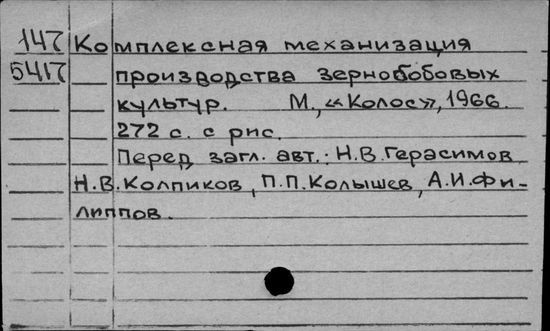 147 Комплексная механизация
5417 производства зернобобовых
культур. М., «Колос», 1966.
272 с. с рис.
Перед загл. авт.: Н.В. Герасимов,
Н.В. Колпиков, П.П. Колышев, А.И. Фи-
липпов.